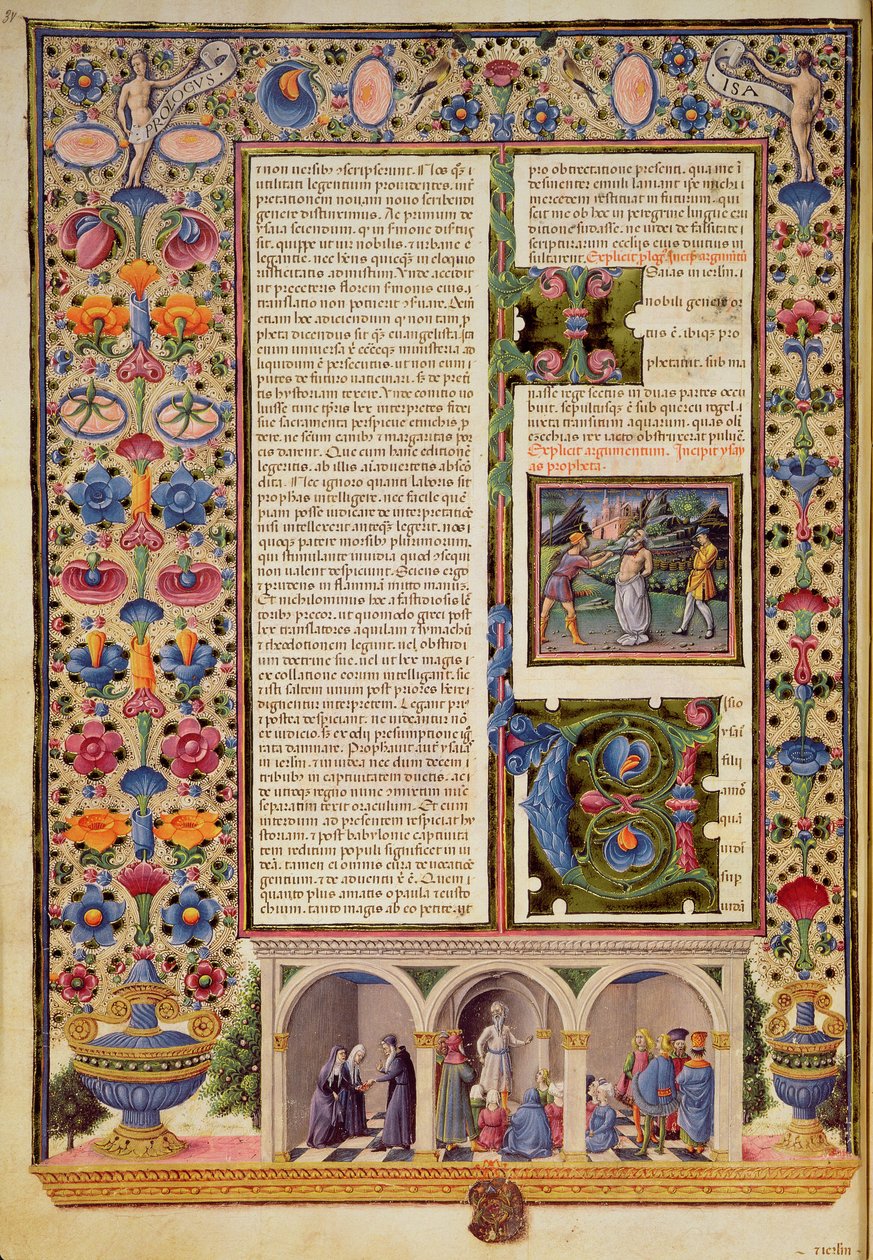 34
PROLOGVS
ISA
⁊ non versibꝰ ɔscripserunt. Nos qꝫ i
utilitati legentium providentes. int̃
pretationem nouam nouo scribendi
genere distinximus. Ac primum de
ysaia sciendum. qꝙ in s̃mone disertus
sit. quippe ut uir nobilis. ⁊ urbane e
legantie. nec h̃ns quicqꝫ in eloquio
rusticitatis admistum. Vnde accidit
ut pre ceteris florem s̃monis eius.
translatio non potuerit ɔs̃uare.
etiam hoc adiciendum qꝙ non tam p
pheta dicendus sit qꝫ euangelista. Ita
enim uniuersa xp̃i eccl̃eqꝫ ministeria ad
liquidum ē persecutus. ut non eum
putes de futuro uaticinari. sꝫ de preti
hystoriam texere. Vnde conicio no
luisse tunc tp̃ris lxx interpretes fidei
sue sacramenta perspicue ethnicis p
dere. ne sc̃um canibꝰ ⁊ margaritas por
cis darent. Que cum hanc editionē
legeritis. ab illis aĩaduertetis absco
dita. Nec ignoro quanti laboris sit
prophas intelligere. nec facile quē
piam posse iudicare de interpretatiōe
nisi intellexerit anteqꝫ legerit. nos
quoqꝫ patere morsibꝰ plurimorum.
qui stimulante inuidia. quod ɔsequi
non ualent despiciunt. Sciens ergo
⁊ prudens in flammā mitto manus.
Et nichilominus hoc a fastidiosis lec
toribꝰ precor. ut quomodo greci post
lxx translatores aquilam ⁊ symachū
⁊ theodotionem legunt. uel ob studi
um doctrine sue. uel ut lxx magis
ex collatione eorum intelligant. sic
⁊ isti saltem unum post priores habere
dignentur interpretem. Legant pri
⁊ postea despiciant. ne uideantur nō
ex iudicio. sꝫ ex odij presumptione ig
rata damnare. Prophauit aut̃ ysaias
in ierlm̃. ⁊ in iudea nec dum decem
tribubꝰ in captiuitatem ductis. ac
de utroqꝫ regno nunc ɔmixtim nūc
separatim texit oraculum. Et cum
interdum ad presentem respiciat hy
storiam. ⁊ post babylonie captiuita
tem reditum populi significet in iu
deā. tamen ei omnis cura de uocatiōe
gentium. ⁊ de aduentu xp̃i ē. Quem
quanto plus amatis o paula ⁊ eusto
chium. tanto magis ab eo petite. ut
pro obtrectatione presenti. qua me
desinenter emuli laniant ip̃e michi
mercedem restituat in futurum. qui
scit me ob hoc in peregrine lingue eru
ditione sudasse. ne iudei de falsitate
scripturarum ecclijs eius diutius in
sultarent. Explicit plgꝰ. Incip̃ argumẽtũ
I Saias in ierlm̃.
nobili genere or
tus ē. ibiqꝫ pro
phetauit. sub ma
nasse rege sectus in duas partes occu
buit. sepultusqꝫ ē sub quercu rogel.
iuxta transitum aquarum. quas oli
ezechias rex iacto obstruxerat puluē.
Explicit argumentum. Incipit ysay
as propheta.
V isio
ysaie
filij
amos
quā
uidit
sup
iudā
⁊ ierlm̃